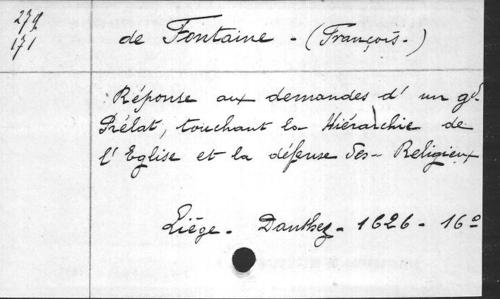 279
171
de Fontaine - (François.)
Réponse aux demandes d' un gd
Prélat, touchant la Hiérarchie de
l'Eglise et la défense des Religieux
Liége. Danthez. 1626. 16º